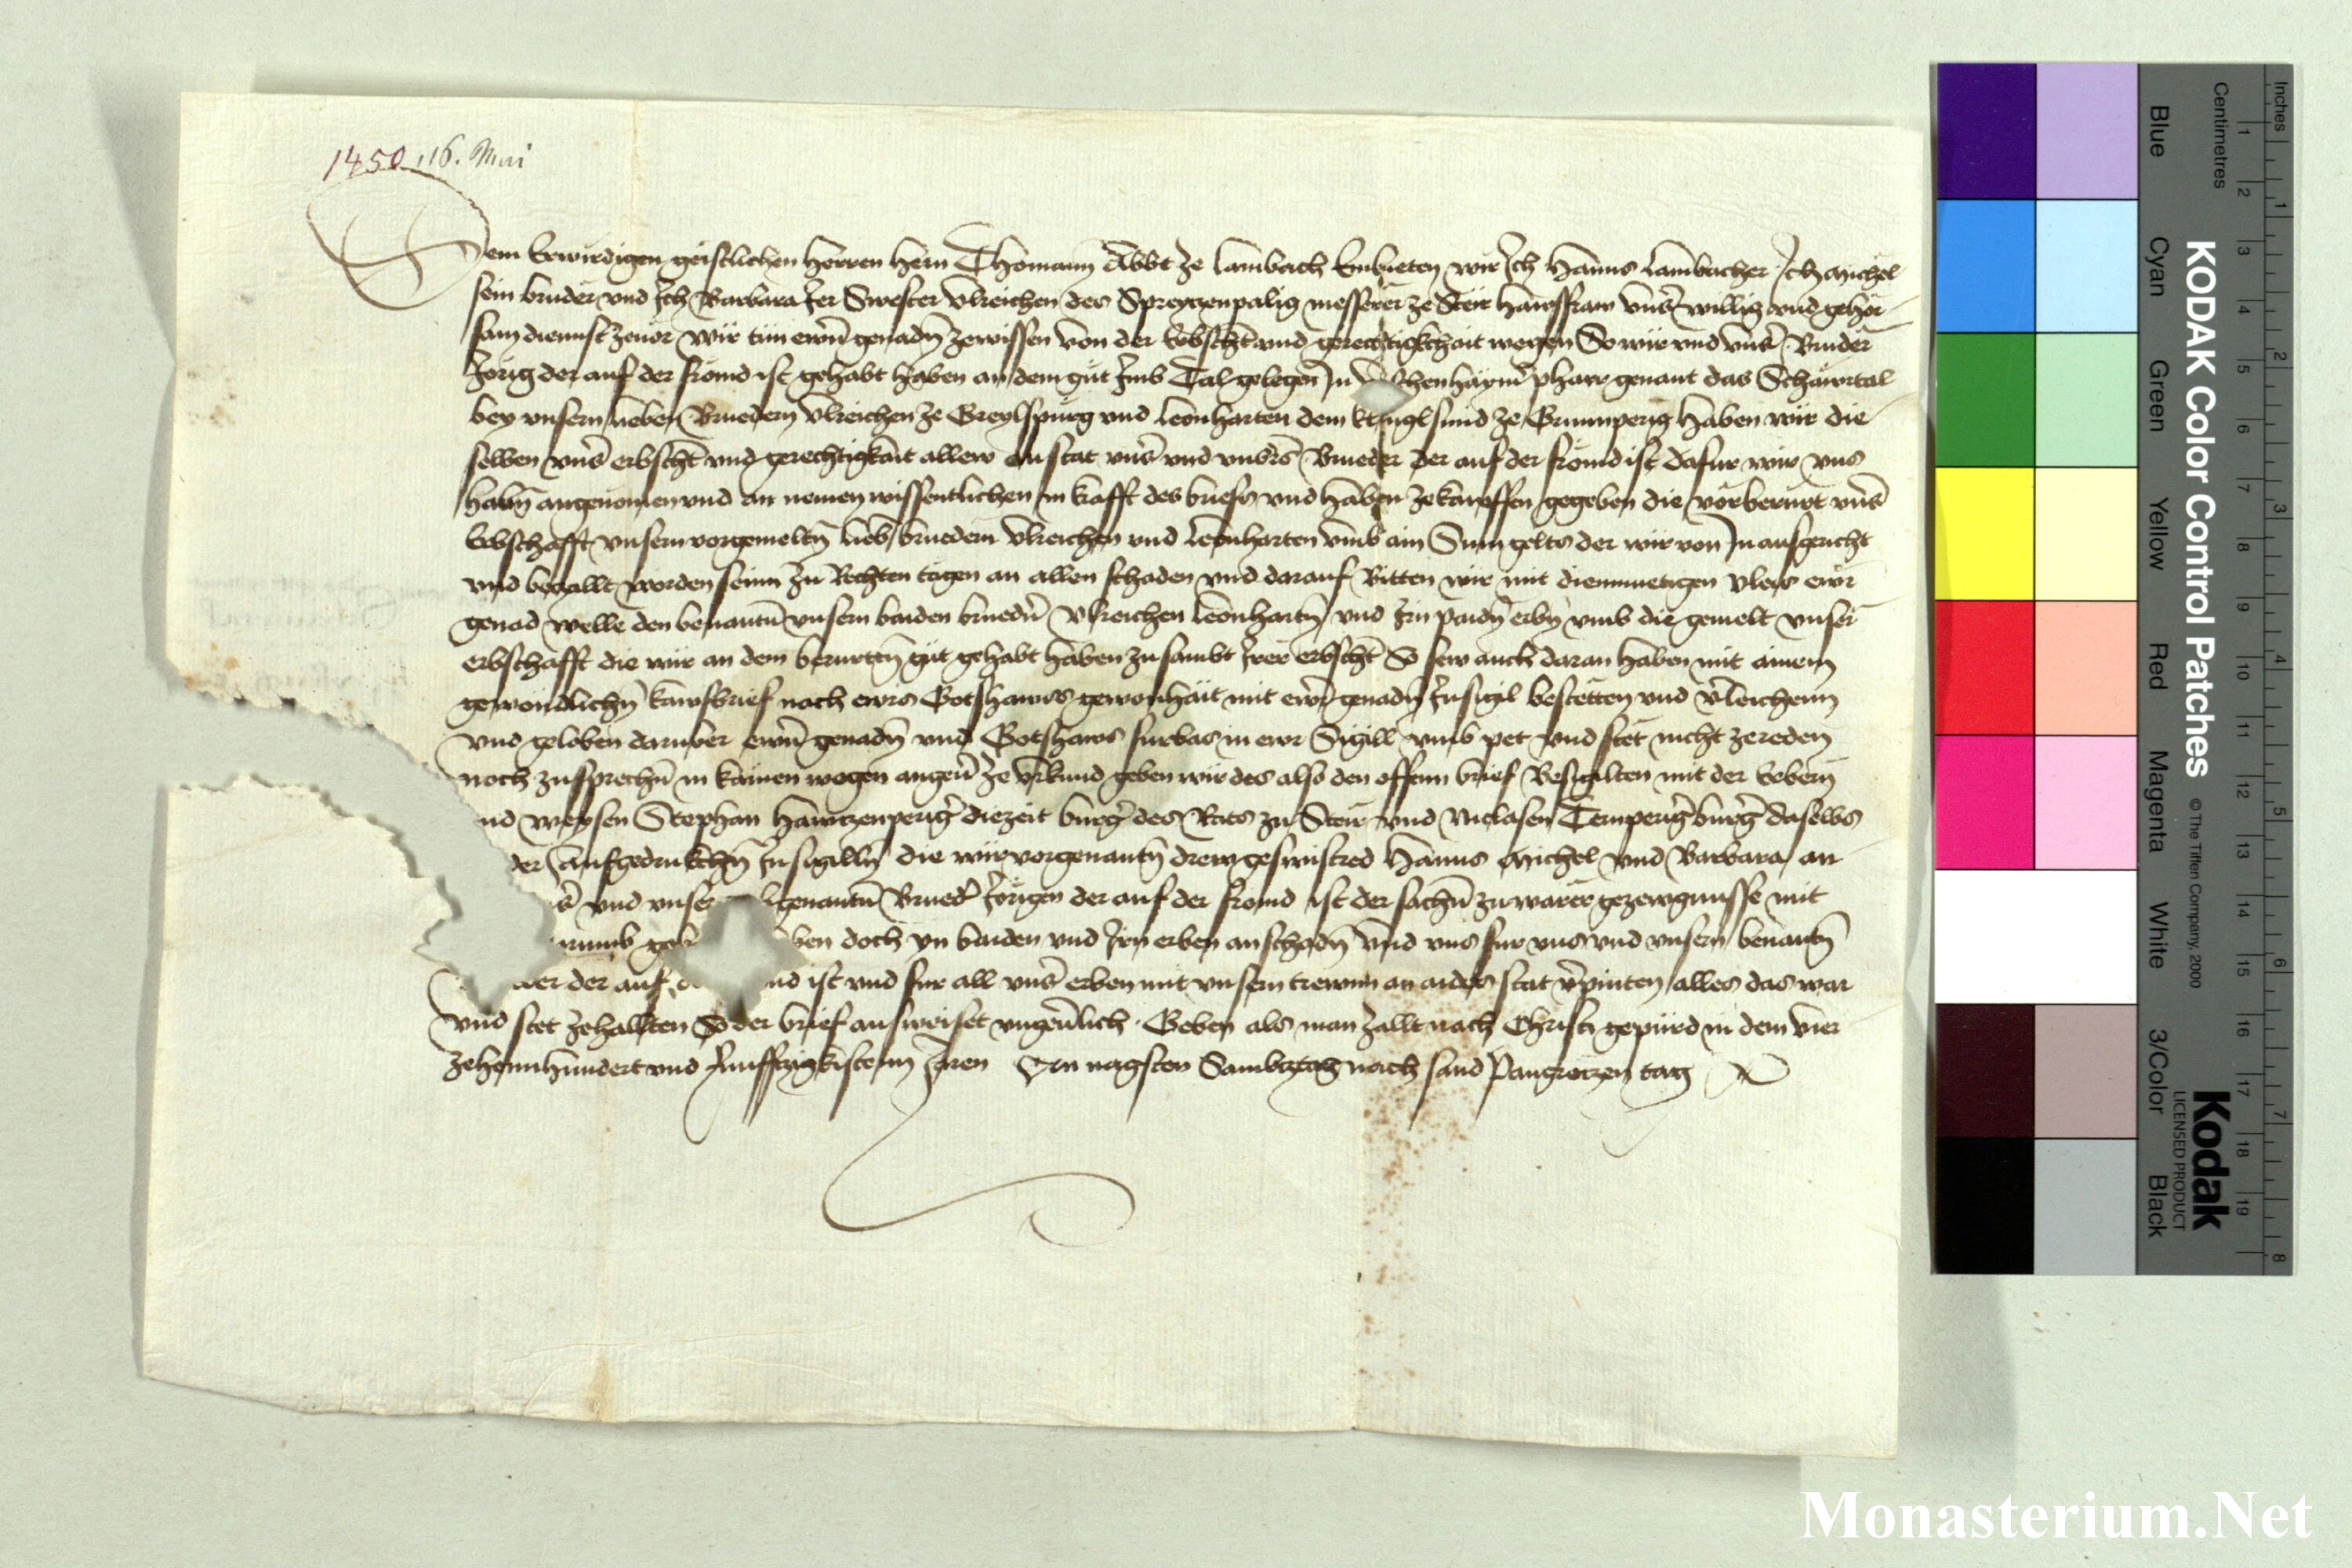 1450, 16. Mai
Dem Erwirdigen geistlichen herren hern Thoman Abbt ze Lambach Embieten wir Ich Hanns Lambacher Ich Michel
sein bruder vnd Ich Barbara Ier Swester Vlreichen des messerer ze Steir hawsfraw vnsr willig vnd gehor
sam diennst zeuor wir tün ewrn genadn zewissen von der Erbscht vnd gerechtigkhait wegen So wir vnd vnsr Bruder
Jorig der auf der fromd ist gehabt haben an dem güt Imb Tal gelegen In pharr genant das Schawrtal
bey vnsern lieben Bruedern Vlreichen ze vnd leonharten dem ze haben wir die
selben vnsr erbscht vnd gerechtigkait allew an stat vnsr vnd vnsers Brueder der auf der fromd ist dafur wir vns
habn angenomen vnd an nemen wissentlichen in krafft des briefs vnd haben ze kawffen gegeben die vorberurt vnsr
Erbschafft vnsern vorgemeltn lieb bruedern Vlreichen vnd leonharten vmb ain Sum gelts der wir von In ausgericht
vnd bezallt worden seinn zu Rechten tagen an allen schaden vnd darauf Bitten wir mit diemuetigen vleis ewr
genad welle den benantn vnsern baiden bruedrn Vlreichen leonhartn vnd Irn paidn erbn vmb die gemelt vnser
erbschafft die wir an dem berurten güt gehabt haben zu sambt Irer erbscht So sew auch daran haben mit ainem
gewondlichn kawfbrief nach ewrs Gotshaws gewonhait mit ewrn genadn Insigil bestetten vnd vrleichenn
vnd geloben daruber ewrn genadn vnd Gotshaws furbas in ewr Sigill vmb pet vnd stet nicht zereden
noch zusprechn in kainen wegen angeur ze vrkund geben wir des also den offenn brief Besigilten mit der Erbern
nd weysen Stephan diezeit burgr des Rats zu Steir vnd Niclasen burgr daselbs
der Aufgedrukchtn Insigilln die wir vorgenantn drew geswistred Hanns Michel vnd Barbara an
vnd vnser genantn Brued Jorigen der auf der fromd ist der sachn zu warer gezewgnusse mit
ben doch yn baiden vnd Irn erben an schadn vnd vns fur vns vnd vnsern benantn
der auf nd ist vnd fur all vnsr erben mit vnsern trewnn an aides stat vrpinten alles das war
vnd stet zehallten So der brief ausweiset vngeurlich. Geben als man zallt nach Christi gepürd in dem vier
zehennhundert vnd funfftzigkistenn Jaren An nagsten Sambztag nach sand Pangretzen tag
Monasterium.Net
KODAK Color Control Patches
© The Tiffen Company, 2000
Kodak
LICENSED PRODUCT
Blue Cyan Green Yellow Red Magenta White 3/Color Black
Centimetres 1 2 3 4 5 6 7 8 9 10 11 12 13 14 15 16 17 18 19
Inches 1 2 3 4 5 6 7 8